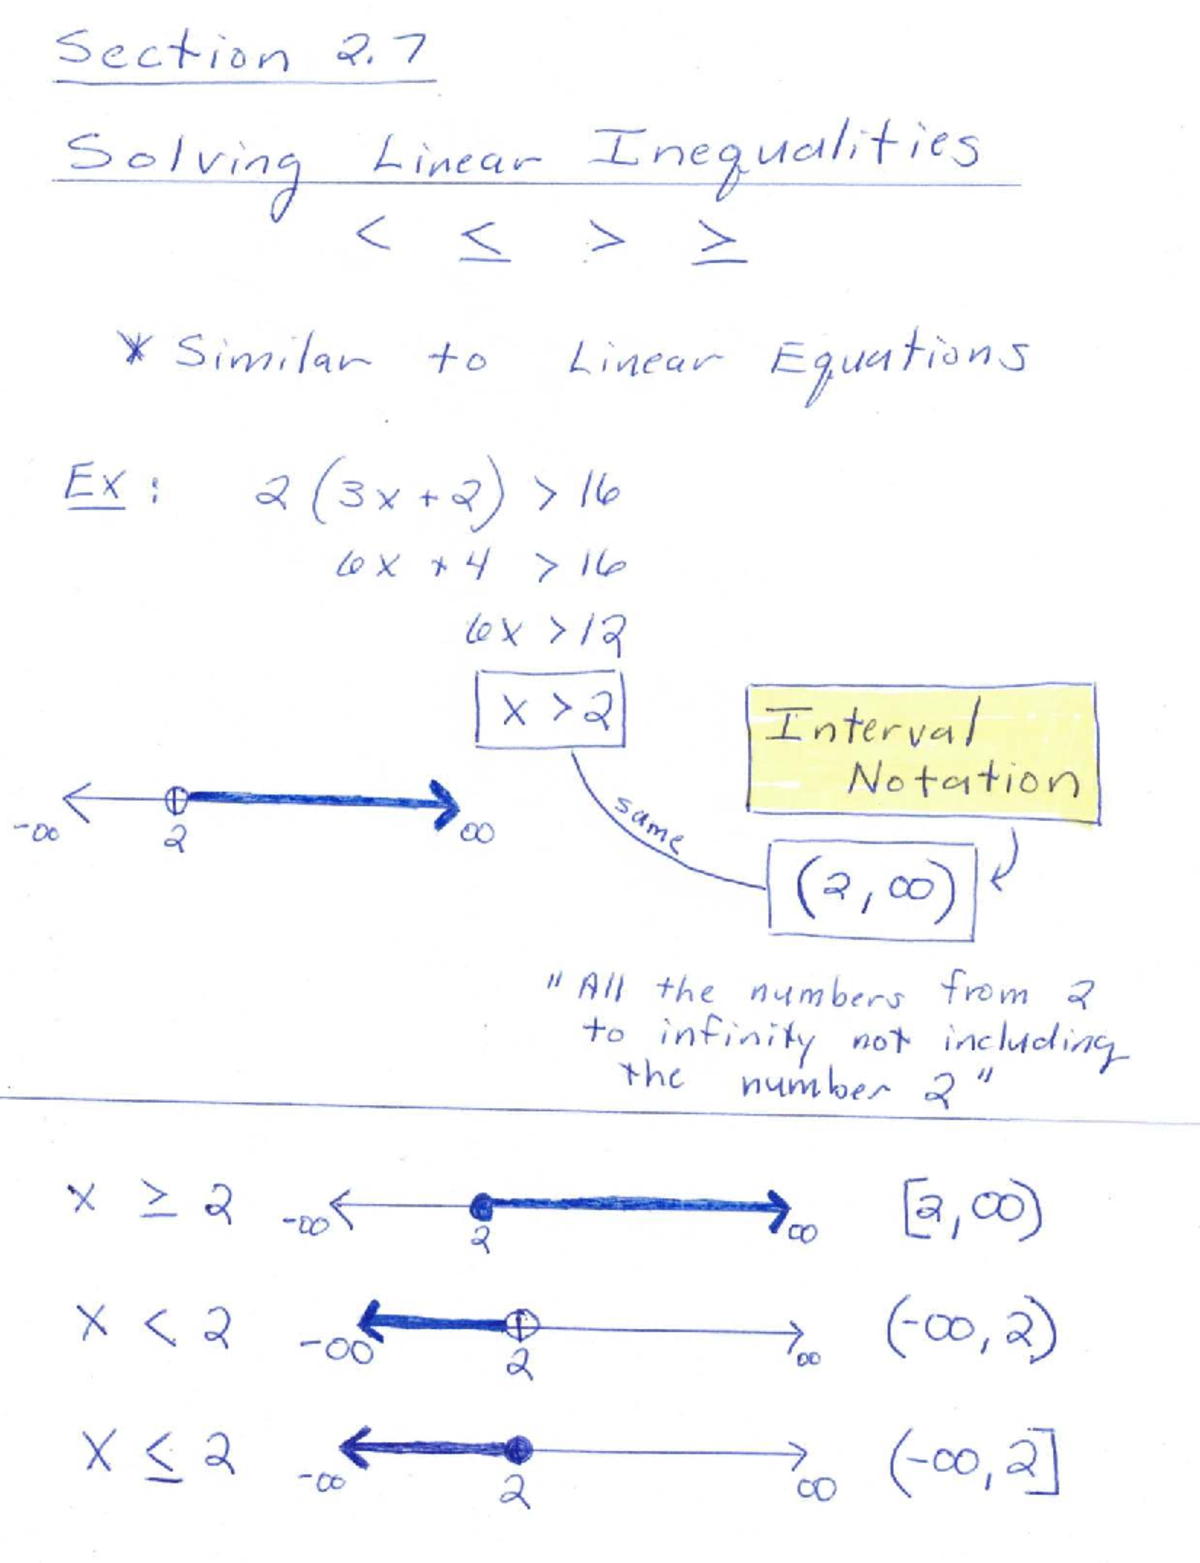 Section 2.7
Solving Linear Inequalities
< ≤ > ≥
* Similar to Linear Equations
Ex: 2(3x+2) > 16
6x + 4 > 16
6x > 12
x > 2
Interval
Notation
-∞ 2 ∞
same
(2, ∞)
"All the numbers from 2
to infinity not including
the number 2"
x ≥ 2 -∞ 2 ∞ [2, ∞)
x < 2 -∞ 2 ∞ (-∞, 2)
x ≤ 2 -∞ 2 ∞ (-∞, 2]